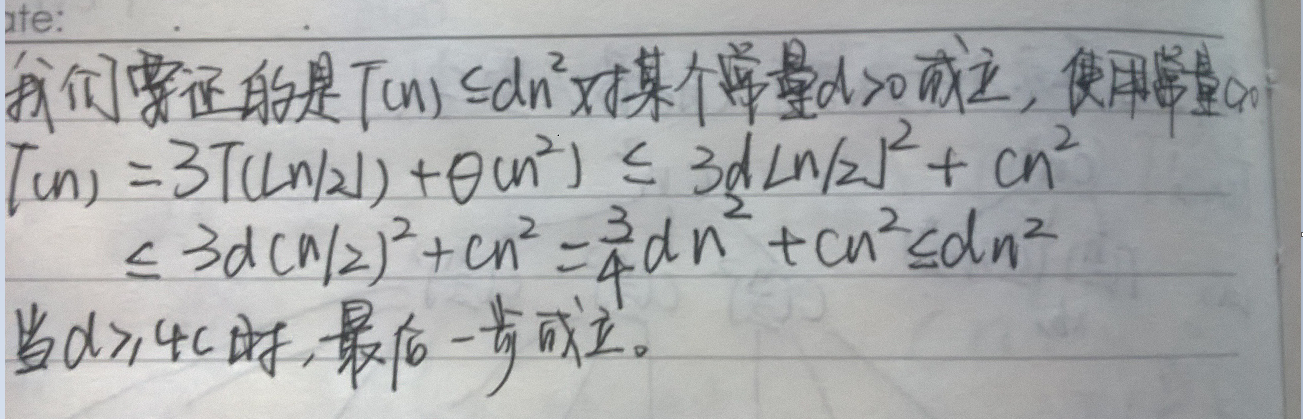 ate:
我们要证的是T(n)≤dn²对某个常量d>0成立，使用常量c>0
T(n) = 3T(⌊n/2⌋) + θ(n²) ≤ 3d⌊n/2⌋² + cn²
≤ 3d(n/2)² + cn² = 3/4 dn² + cn² ≤ dn²
当d≥4c时，最后一步成立。